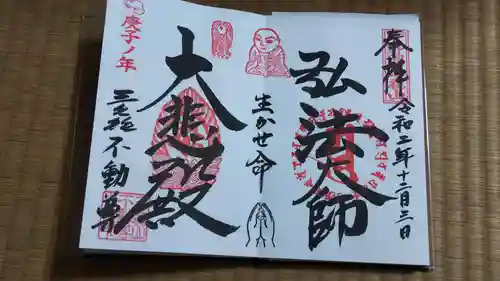 奉拝
令和二年十二月三日
弘法大師
生かせ命
大悲殿
庚子ノ年
不動尊